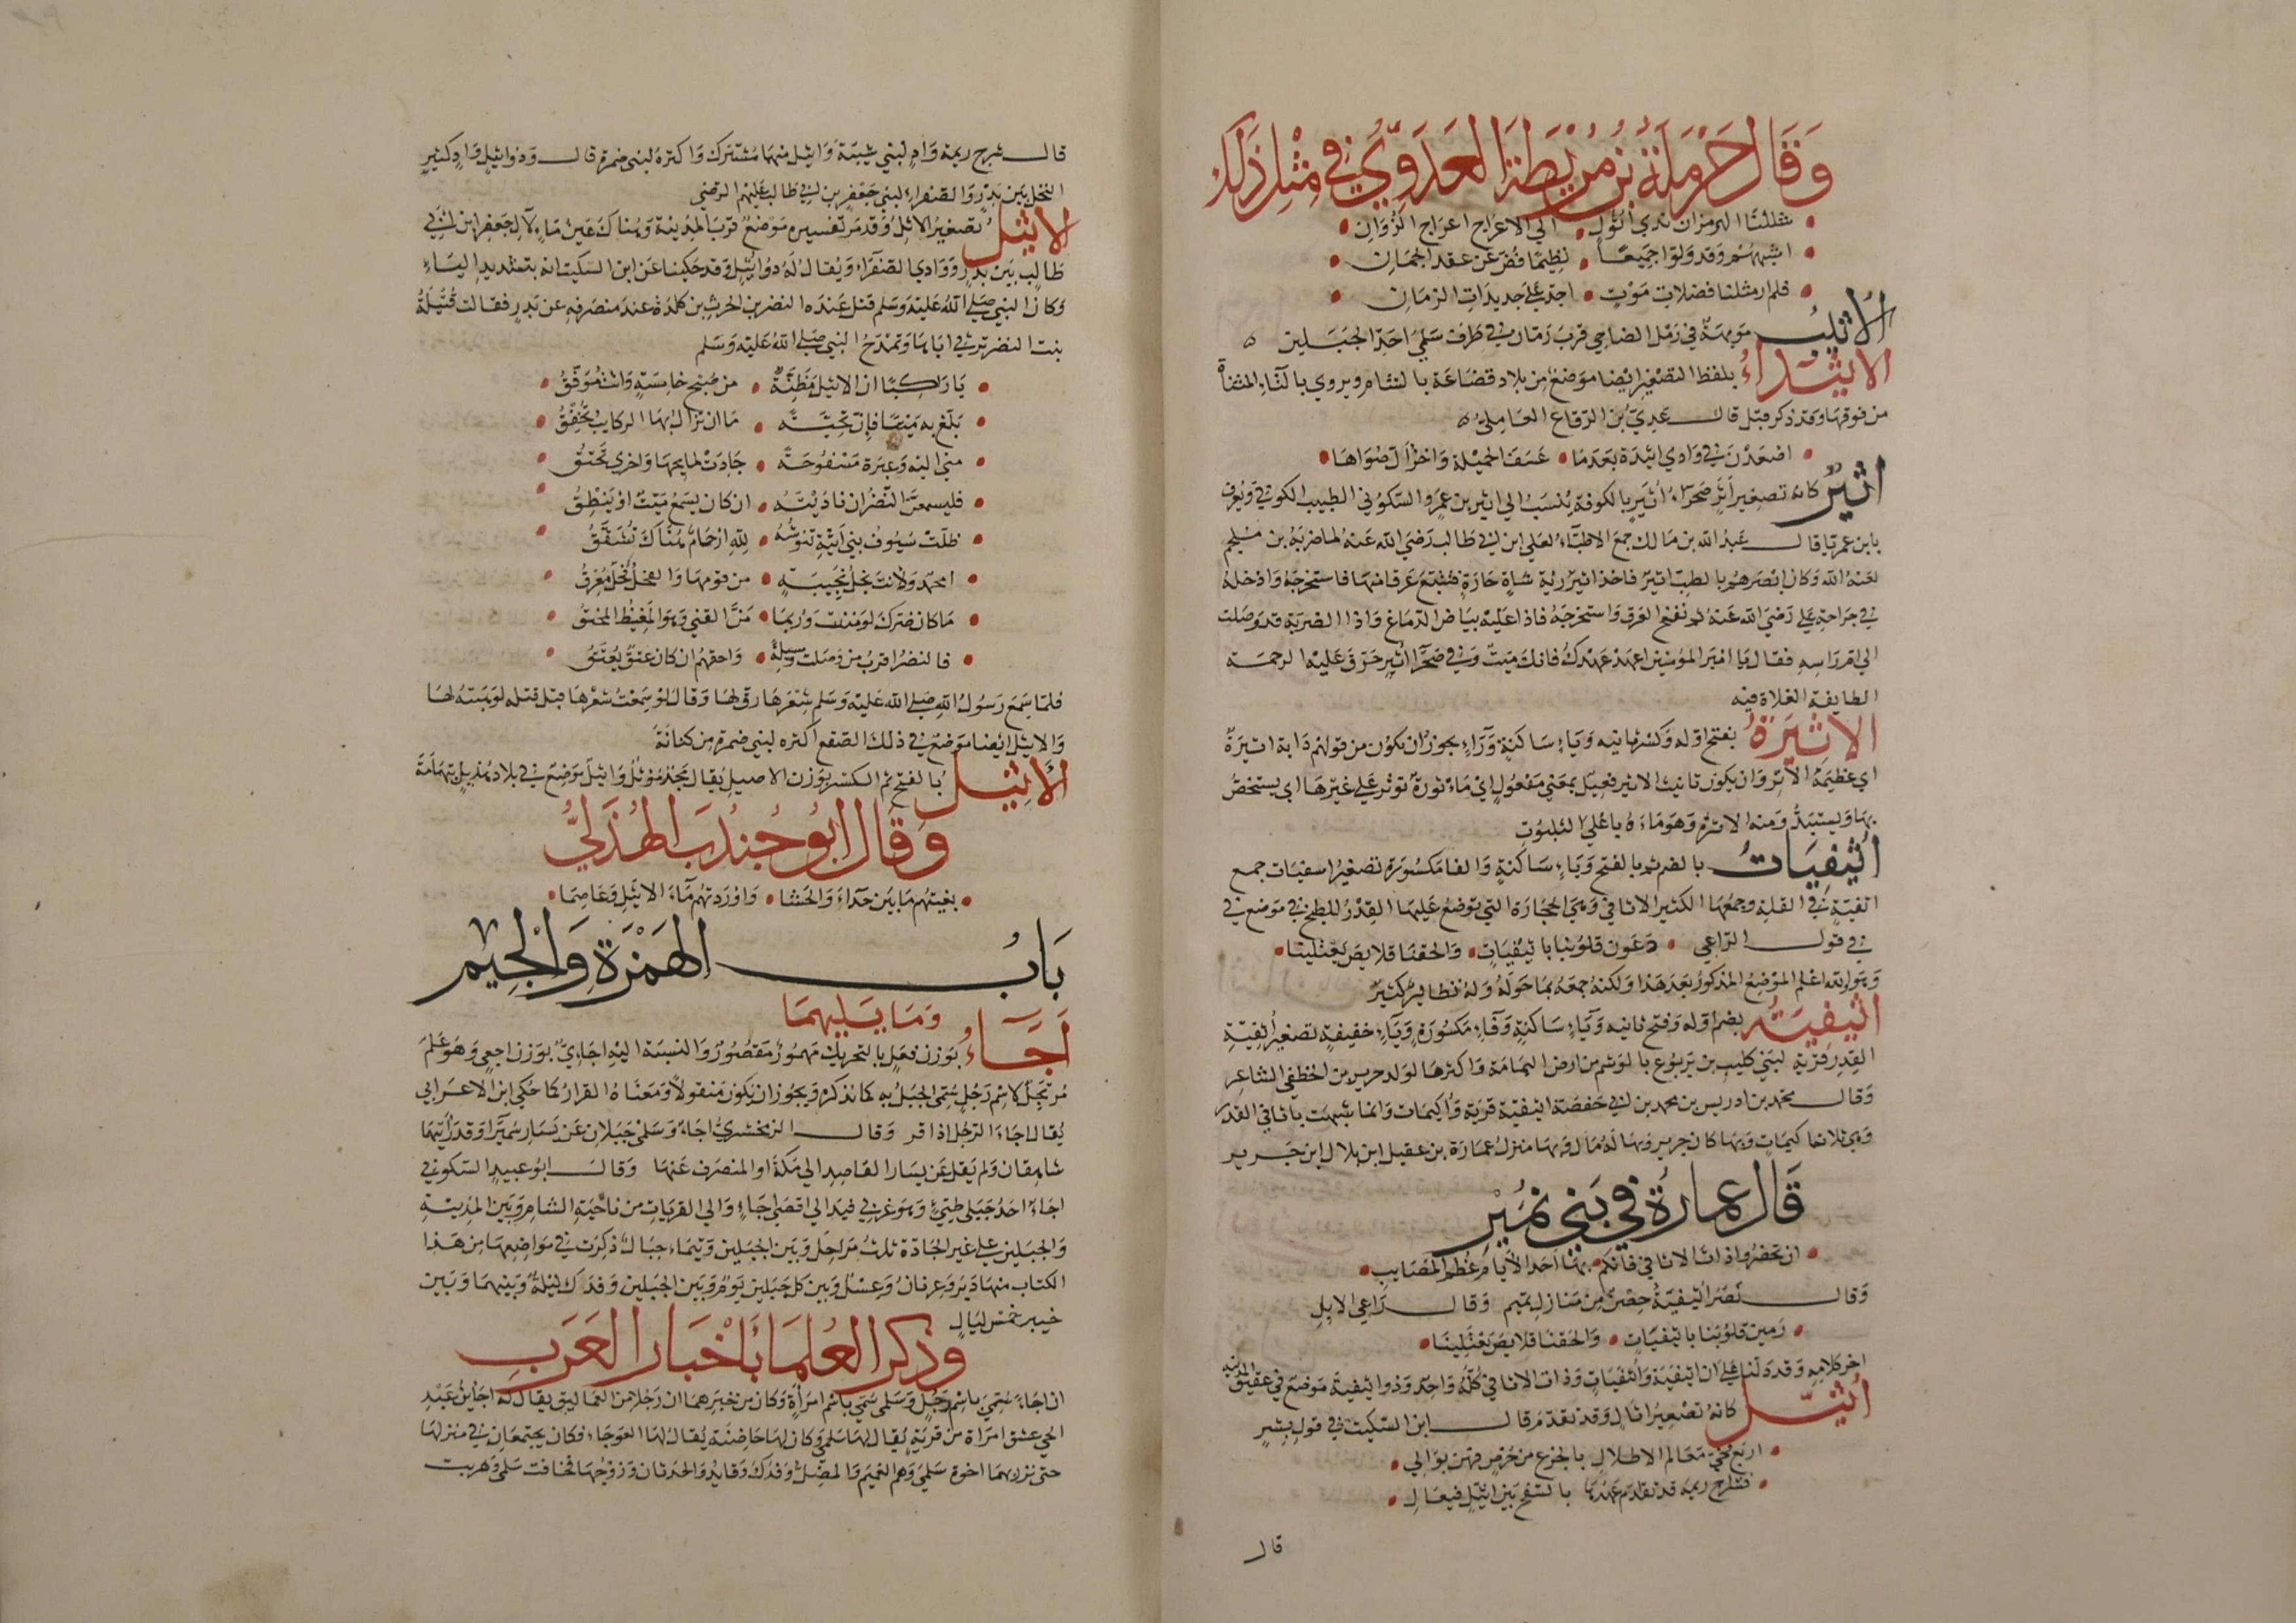 وَقَالَ حَرْمَلَةُ بْنُ مُرَيْطَةَ العَدَوِيُّ فِي مِثْلِ ذَلِكَ
شللنا الهرمزان بذي أثول • الي الاعراج اعراج الزوان
اشبههم وقد ولوا جميعا • نظيما فض عن عقد الجمان
فلم ار مثلنا فضلات موت • اجد علي جديدات الزمان
الأثيب مويهة في رمل الضاحي قرب رمان في طرف سلمي احد الجبلين
الأثيداء بلفظ التصغير ايضا موضع من بلاد قضاعة بالشام ويروي بالتاء المثناة
من فوقها وقد ذكر قبل قال عدي بن الرقاع العاملي
اصعدن في وادي اثيدة بعدما • عسف الخميلة واخزأل صواها
اثير كانه تصغير اثر صحراء اثير بالكوفة ينسب الي اثير بن عمرو السكوني الطبيب الكوفي ويعرف
بابن عمريا قال عبد الله بن مالك جمع الاطباء لعلي ابن ابي طالب رضي الله عنه لما ضربه بن ملجم
لعنه الله وكان ابصرهم بالطب اثير فاخذ اثير رية شاة حارة فتتبع عرقا منها فاستخرجه وادخله
في جراحة علي رضي الله عنه ثم نفخ العرق واستخرجه فاذا عليه بياض الدماغ واذا الضربة قد وصلت
الي ام راسه فقال يا امير المومنين اعهد عهدك فانك ميت وفي صحرا اثير حرق عليه الرحمة
الطايفة الغلاة فيه
الأثيرة بفتح اوله وكسر ثانيه وياء ساكنة وراء يجوز ان يكون من قولهم دابة اثيرة
اي عظيمة الاثر وان يكون تانيث الاثير فعيل بمعني مفعول اي ماثورة توثر علي غيرها اي يستخص
بها ويستبد ومنه الاثرة وهو ماءه باعلي الثلبوت
أثيفيات بالضم ثم بالفتح وياء ساكنة والفا مكسورة تصغير اسفيات جمع
اثفية في القلة وجمعها الكثير الاثافي وهي الحجارة التي توضع عليها القدر للطبخ في موضع في
في قول الراعي • دعون قلوبنا باثيفيات • والحقنا قلايص يعتلينا •
وهو والله اعلم الموضع المذكور بعد هذا ولكنه جمعه بما حوله وله نظاير كثير
أثيفية بضم اوله وفتح ثانيه وياء ساكنة وفاء مكسورة وياء خفيفة تصغير اثفية
القدر قرية لبني كليب بن يربوع بالوشم من ارض اليمامة واكثرها لولد جرير بن الخطفي الشاعر
وقال محمد بن ادريس بن محمد بن ابي حفصة اثيفية قرية وأكيمات وانما شبهت باثافي القدر
وهي ثلاث اكيمات وبها كان جرير وبها له مال وبها منزل عمارة بن عقيل ابن بلال ابن جرير
قَالَ عمارة في بَنِي نُمَيْرٍ
ان تحضروا ذات الاثافي فانكم • بها احد الأيام عظم المصايب
وقال نصر أثيفية حصن من منازل تميم وقال راعي الابل
رمين قلوبنا باثيفيات • والحقنا قلايص يعتلينا
اخر كلامه وقد دلنا علي ان اثيفية واثفيات وذات الاثافي كله واحد وذو اثيفية موضع في عقيق المدينة
أُثيل كانه تصغير اثال وقد تقدم قال ابن السكيت في قول بشر
اربع تحي معالم الاطلال بالجزع من حرض فهن بوالي
فشراج ريمة قد تقادم عهدها بالسفح بين اثيل فبعال
قال
قال شرج ريمة واد لبني شيبة واثيل منها مشترك واكثره لبني ضمرة قال وذو اثيل واد كثير
النخل بين بدر والصفراء لبني جعفر بن ابي طالب عليهم الرضي
الأثيل تصغير الاثل وقد مر تفسيره موضع قرب المدينة وهناك عين ماء لآل جعفر ابن ابي
طالب بين بدر ووادي الصفراء ويقال له ذو اثيل وقد حكينا عن ابن السكيت انه بتشديد الياء
وكان النبي صلي الله عليه وسلم قتل عنده النضر بن الحرث بن كلدة عند منصرفه عن بدر فقالت قتيلة
بنت النضر ترثي اباها وتمدح النبي صلي الله عليه وسلم
يا راكبا ان الاثيل مظنة • من صبح خامسة وانت موفق
بلغ به ميتا فان تحية • ما ان تزال بها الركايب تخفق
مني اليه وعبرة مسفوحة • جادت لمايحها واخري تخنق
فليسمعن النضر ان ناديته • ان كان يسمع ميت او ينطق
ظلت سيوف بني ابيه تنوشه • لله ارحام هناك تشقق
امحمد ولانت نجل نجيبة • من قومها والفحل فحل معرق
ما كان ضرك لو مننت وربما • من الفتي وهو المغيظ المحنق
فالنضر اقرب من وصلت وسيلة • واحقهم ان كان عتق يعتق
فلما سمع رسول الله صلي الله عليه وسلم شعرها رق لها وقال لو سمعت شعرها قبل قتله لوهبته لها
والاثيل ايضا موضع في ذلك الصقع اكثره لبني ضمرة من كنانة
الأَثِيل بالفتح ثم الكسر بوزن الاصيل يقال مجد موثل واثيل موضع في بلاد هذيل بتهامة
وَقَالَ ابُو جُنْدَب الهُذَلِيُّ
بغيتهم ما بين حداء والحشا • واوردتهم ماء الاثيل وعاصما
بَابُ الهَمْزَةِ وَالجِيْمِ
وَمَا يَلِيهِمَا
أَجَاءُ بوزن فعل بالتحريك مهموز مقصور والنسبة اليه اجاءي بوزن اجعي وهو علم
مرتجل لاسم رجل سمي الجبل به كما نذكره ويجوز ان يكون منقولا ومعناه القرار كما حكي ابن الاعرابي
يقال اجاء الرجل اذا فر وقال الزمخشري اجاء وسلمي جبلان عن يسار سميرا وقد رأيتهما
شاهقان ولم يقل عن يسار القاصد الي مكة او المنصرف عنها وقال ابو عبيد السكوني
اجاء احد جبلي طيئ وهو غربي فيد الي اقصي اجاء والي القريات من ناحية الشام وبين المدينة
والجبلين علي غير الجادة ثلث مراحل وبين الجبلين وتيماء جبال ذكرت في مواضعها من هذا
الكتاب منها دبر وعرنان وعسل وبين كل جبلين يوم وبين الجبلين وفدك ليلة وبينهما وبين
خيبر خمس ليال
وذكر العُلَمَا بأَخْبَار العَرَبِ
ان اجاء سمي باسم رجل وسلمي سمي باسم امرأة وكان من خبرهما ان رجلا من العماليق يقال له اجأ بن عبد
الحي عشق امراة من قومه يقال لها سلمي وكان لها حاضنة يقال لها العوجا وكان يجتمعان في منزلها
حتي نذر بهما اخوة سلمي وهم الغميم والمضل وفدك وفايد والحدثان وزوجها فخافت سلمي وهربت